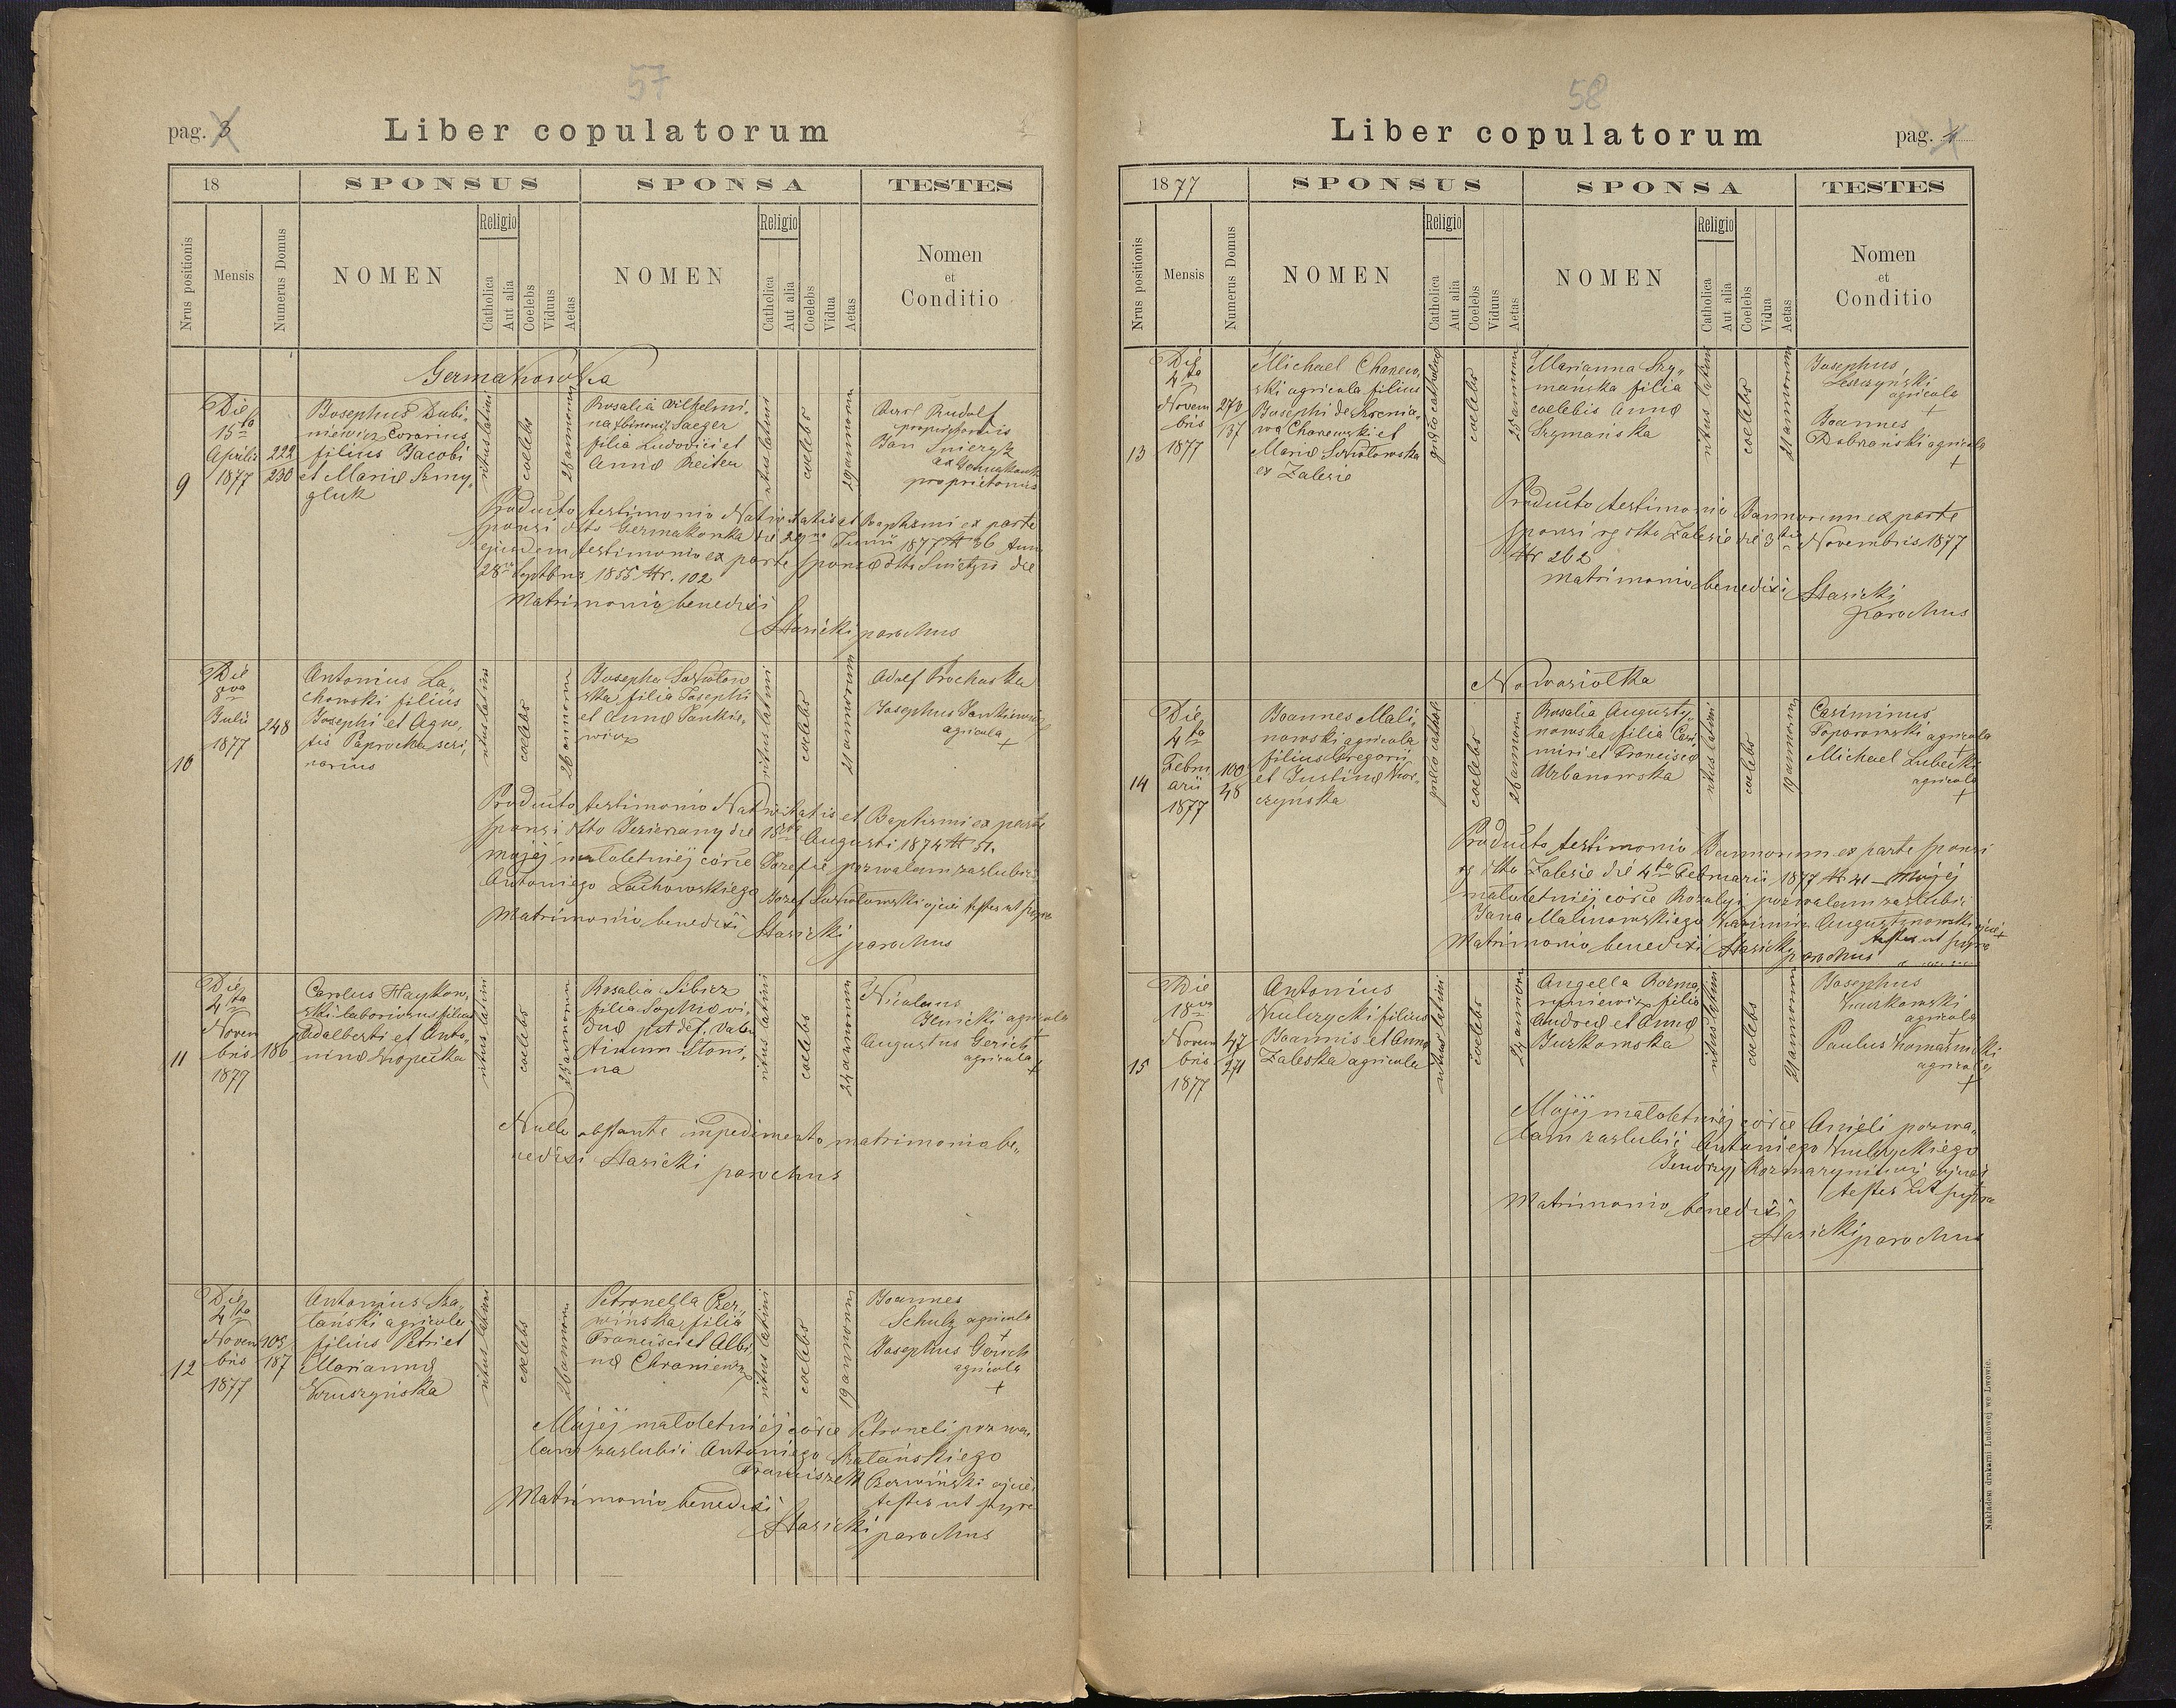 57
pag. 3
Liber copulatorum
18
SPONSUS
SPONSA
TESTES
Nrus positionis
Mensis
Numerus Domus
NOMEN
Religio
Catholica
Aut alia
Coelebs
Viduus
Aetas
NOMEN
Religio
Catholica
Aut alia
Coelebs
Vidua
Aetas
Nomen
et
Conditio
Germakowka
9
Die
15ta
Aprilis
1877
222
230
Josephus Dubi„
niewicz
filius Jacobi
et Mariæ Szmy„
gluk
ritus latini
coelebs
28 annorum
Rosalia Vilhelmi„
na Saeger
filia Ludovici et
Annæ Reiter
ritus latini
coelebs
29 annorum
Karol Rudolf
proprietarius
Jan
proprietarius
Producto testimonio Nativitatis et Baptismi ex parte
sponsi dtto Germakowka die Junii 1877 N 36
ejusdem testimonio ex parte sponsæ dtto die
28 Septbris 1855 Nr. 102
Matrimonio benedixi
Stasicki parochus
10
Die
8va
Julii
1877
248
Antonius La„
chowski filius
Josephi et Agne„
tis Paprocka
ritus latini
coelebs
26 annorum
Josepha Sokołow
ska filia Josephi
et Annæ Jankie„
wicz
ritus latini
coelebs
21 annorum
Adolf Prochaska
Josephus Jankiewicz
agricola
+
Producto testimonio Nativitatis et Baptismi ex parte
sponsi dtto Jezierzany die 15 Augusti 1874 N 51.
Mojéj małoletniéj córce Józefie pozwalam zaslubić
Antoniego Lachowskiego Józef Sokołowski ojciec testes ut supra
Matrimonio benedixi Stasicki
parochus
11
Die
4ta
Novem
bris
1879
186
Carolus Haykow„
ski laboriosus filius
Adalberti et Anto„
ninæ Kropecka
ritus latini
coelebs
25 annorum
Rosalia Sibicz
filia Sophiæ vi„
duæ post def. Valen
tinum Stoni„
na
ritus latini
coelebs
24 annorum
Nicolaus
Ilnicki agricola
+
Augustus Gerich
agricola
+
Nullo obstante impedimento matrimonio be„
nedixi Stasicki
parochus
12
Die
4ta
Novem
bris
1877
103
187
Antonius Sza„
tański agricola
filius Petri et
Mariannæ
Kruszyńska
ritus latini
coelebs
26 annorum
Petronella Czer„
wińska filia
Francisci et Albi
næ Chraniewicz
ritus latini
coelebs
19 annorum
Joannes
Schulz agricola
+
Josephus Gerich
agricola
+
Mojéj małoletniéj córce Petroneli pozwa„
lam zaslubić Antoniego Szatańskiego
Franciszek Czerwiński ojciec
testes ut supra
Matrimonio benedixi
Stasicki
parochus
58
Liber copulatorum
pag. 4
1877
SPONSUS
SPONSA
TESTES
Nrus positionis
Mensis
Numerus Domus
NOMEN
Religio
Catholica
Aut alia
Coelebs
Viduus
Aetas
NOMEN
Religio
Catholica
Aut alia
Coelebs
Vidua
Aetas
Nomen
et
Conditio
13
Die
4ta
Novem
bris
1877
270
137
Michael Charew„
ski agricola filius
Josephi de
Charewski et
Mariæ Sokołowska
ex Zalesie
græco catholici
coelebs
25 annorum
Marianna Szy„
mańska filia
coelebis Annæ
Szymańska
ritus latini
coelebs
21 annorum
Josephus
Leszczyński
agricola
+
Joannes
Dobrzański agricola
+
Producto testimonio Bannorum ex parte
sponsi rg dtto Zalesie die 3tia Novembris 1877
Nr 262
Matrimonio benedixi Stasicki
parochus
Nowosiołka
14
Die
4ta
Febru
arii
1877
100
48
Joannes Mali„
nowski agricola
filius Gregorii
et Justinæ Kor„
czyńska
græco cathol
coelebs
26 annorum
Rosalia Augusty„
nowska filia Casi„
miri et Franciscæ
Urbanowska
ritus latini
coelebs
19 annorum
Casimirus
Toporowski agricola
+
Michael Lubecki
agricola
+
Producto testimonio Bannorum ex parte sponsi
rg dtto Zalesie die 4ta Februarii 1877 Nr 41 – Mojéj
małoletniéj córce Rozalyi pozwalam zaslubić
Jana Malinowskiego Kazimir Augustynowski ojciec +
testes ut supra
Matrimonio benedixi Stasicki parochus
15
Die
18va
Novem
bris
1877
47
271
Antonius
Kulczycki filius
Joannis et Annæ
Zaleska agricola
ritus latini
coelebs
24 annorum
Angella Rozma„
ryniewicz filia
Andreæ et Annæ
Jurkowska
ritus latini
coelebs
21 annorum
Josephus
agricola
+
Paulus Komarnicki
agricola
+
Mojéj małoletniéj córce Anieli pozwa„
lam zaslubić Antoniego Kulczyckiego
Jendrzyj Rozmaryniewicz ojciec
testes ut supra
Matrimonio benedixi
Stasicki parochus
Nakładem drukarni Ludowej we Lwowie.